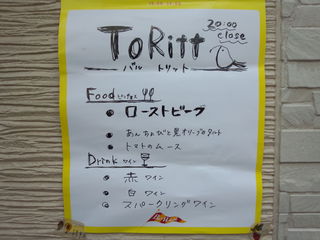 20:00
close
ToRitt
バル トリット
Food
ローストビーフ
あんちょびと黒オリーブのタルト
トマトのムース
Drink ワイン
赤 ワイン
白 ワイン
スパークリングワイン